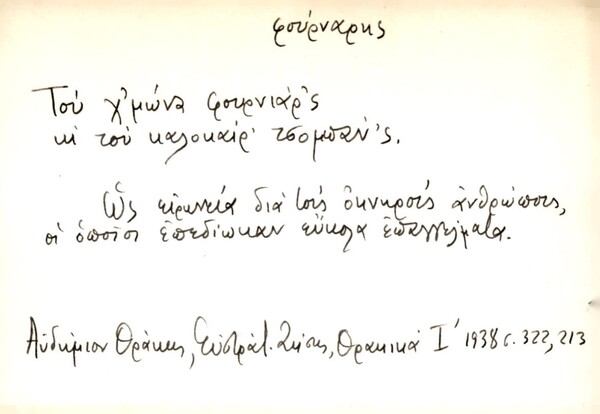 φούρναρης
Τού χ'μώνα φουρνιάρ'ς
κι τού καλοκαίρ' τσομπάν'ς.
Ὡς εἰρωνεία διά τούς ὀκνηρούς ἀνθρώπους,
οἱ ὁποῖοι ἐπεδίωκαν εὔκολα ἐπαγγέλματα.
Αὐδήμιον Θράκης, Εὐστρατ. Ζήσης, Θρακικά Ι' 1938 σ. 322, 213